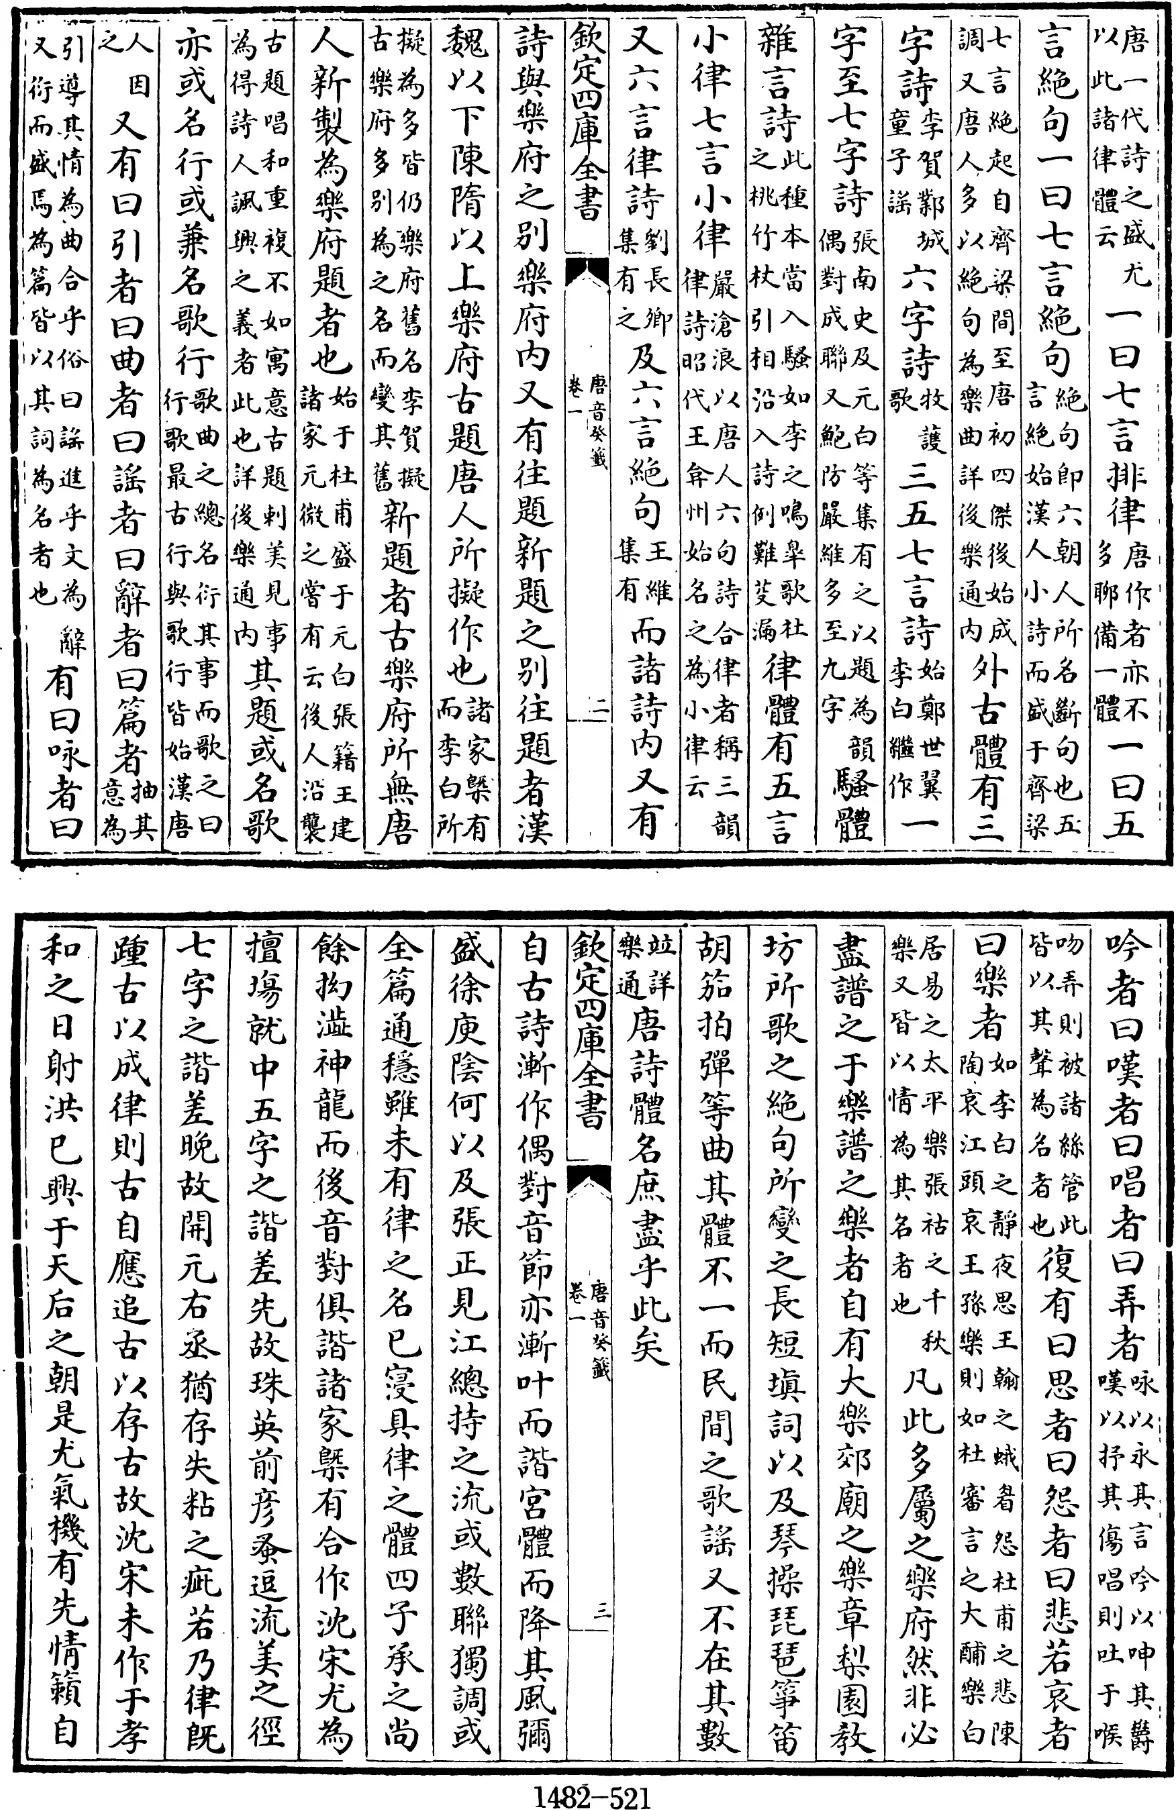 唐一代詩之盛尤以此諸律體云一曰七言排律唐作者亦不多聊備一體一曰五
言絶句一曰七言絶句絶句即六朝人所名斷句也五言絶始漢人小詩而盛于齊梁
七言絶起自齊梁間至唐初四傑後始成調又唐人多以絶句為樂曲詳後樂通内外古體有三
字詩李賀鄴城童子謡六字詩牧護歌三五七言詩始鄭世翼李白繼作一
字至七字詩張南史及元白等集有之以題為韻偶對成聯又鮑防嚴維多至九字騷體
雜言詩此種本當入騷如李之鳴臯歌杜之桃竹杖引相沿入詩例難芟漏律體有五言
小律七言小律嚴滄浪以唐人六句詩合律者稱三韻律詩昭代王弇州始名之為小律云
又六言律詩劉長卿集有之及六言絶句王維集有而諸詩内又有
欽定四庫全書 唐音癸籤 卷一 二
詩與樂府之别樂府内又有往題新題之别往題者漢
魏以下陳隋以上樂府古題唐人所擬作也諸家槩有而李白所
擬為多皆仍樂府舊名李賀擬古樂府多别為之名而變其舊新題者古樂府所無唐
人新製為樂府題者也始于杜甫盛于元白張籍王建諸家元微之嘗有云後人沿襲
古題唱和重複不如寓意古題刺美見事為得詩人諷興之義者此也詳後樂通内其題或名歌
亦或名行或兼名歌行歌曲之總名衍其事而歌之曰行歌最古行與歌行皆始漢唐
人因之又有曰引者曰曲者曰謡者曰辭者曰篇者抽其意為
引導其情為曲合乎俗曰謡進乎文為辭又衍而盛焉為篇皆以其詞為名者也有曰咏者曰
吟者曰嘆者曰唱者曰弄者咏以永其言吟以呻其鬱嘆以抒其傷唱則吐于喉
吻弄則被諸絲管此皆以其聲為名者也復有曰思者曰怨者曰悲若哀者
曰樂者如李白之靜夜思王翰之蛾眉怨杜甫之悲陳陶哀江頭哀王孫樂則如杜審言之大酺樂白
居易之太平樂張祜之千秋樂又皆以情為其名者也凡此多屬之樂府然非必
盡譜之于樂譜之樂者自有大樂郊廟之樂章梨園教
坊所歌之絶句所變之長短填詞以及琴操琵琶箏笛
胡笳拍彈等曲其體不一而民間之歌謡又不在其數
竝詳樂通唐詩體名庶盡乎此矣
欽定四庫全書 唐音癸籤 卷一 三
自古詩漸作偶對音節亦漸叶而諧宮體而降其風彌
盛徐庾陰何以及張正見江總持之流或數聯獨調或
全篇通穩雖未有律之名已寖具律之體四子承之尚
餘拗澁神龍而後音對俱諧諸家槩有合作沈宋尤為
擅塲就中五字之諧差先故珠英前彦蚤逗流美之徑
七字之諧差晩故開元右丞猶存失粘之疵若乃律既
踵古以成律則古自應追古以存古故沈宋未作于孝
和之日射洪已興于天后之朝是尤氣機有先情籟自
1482-521